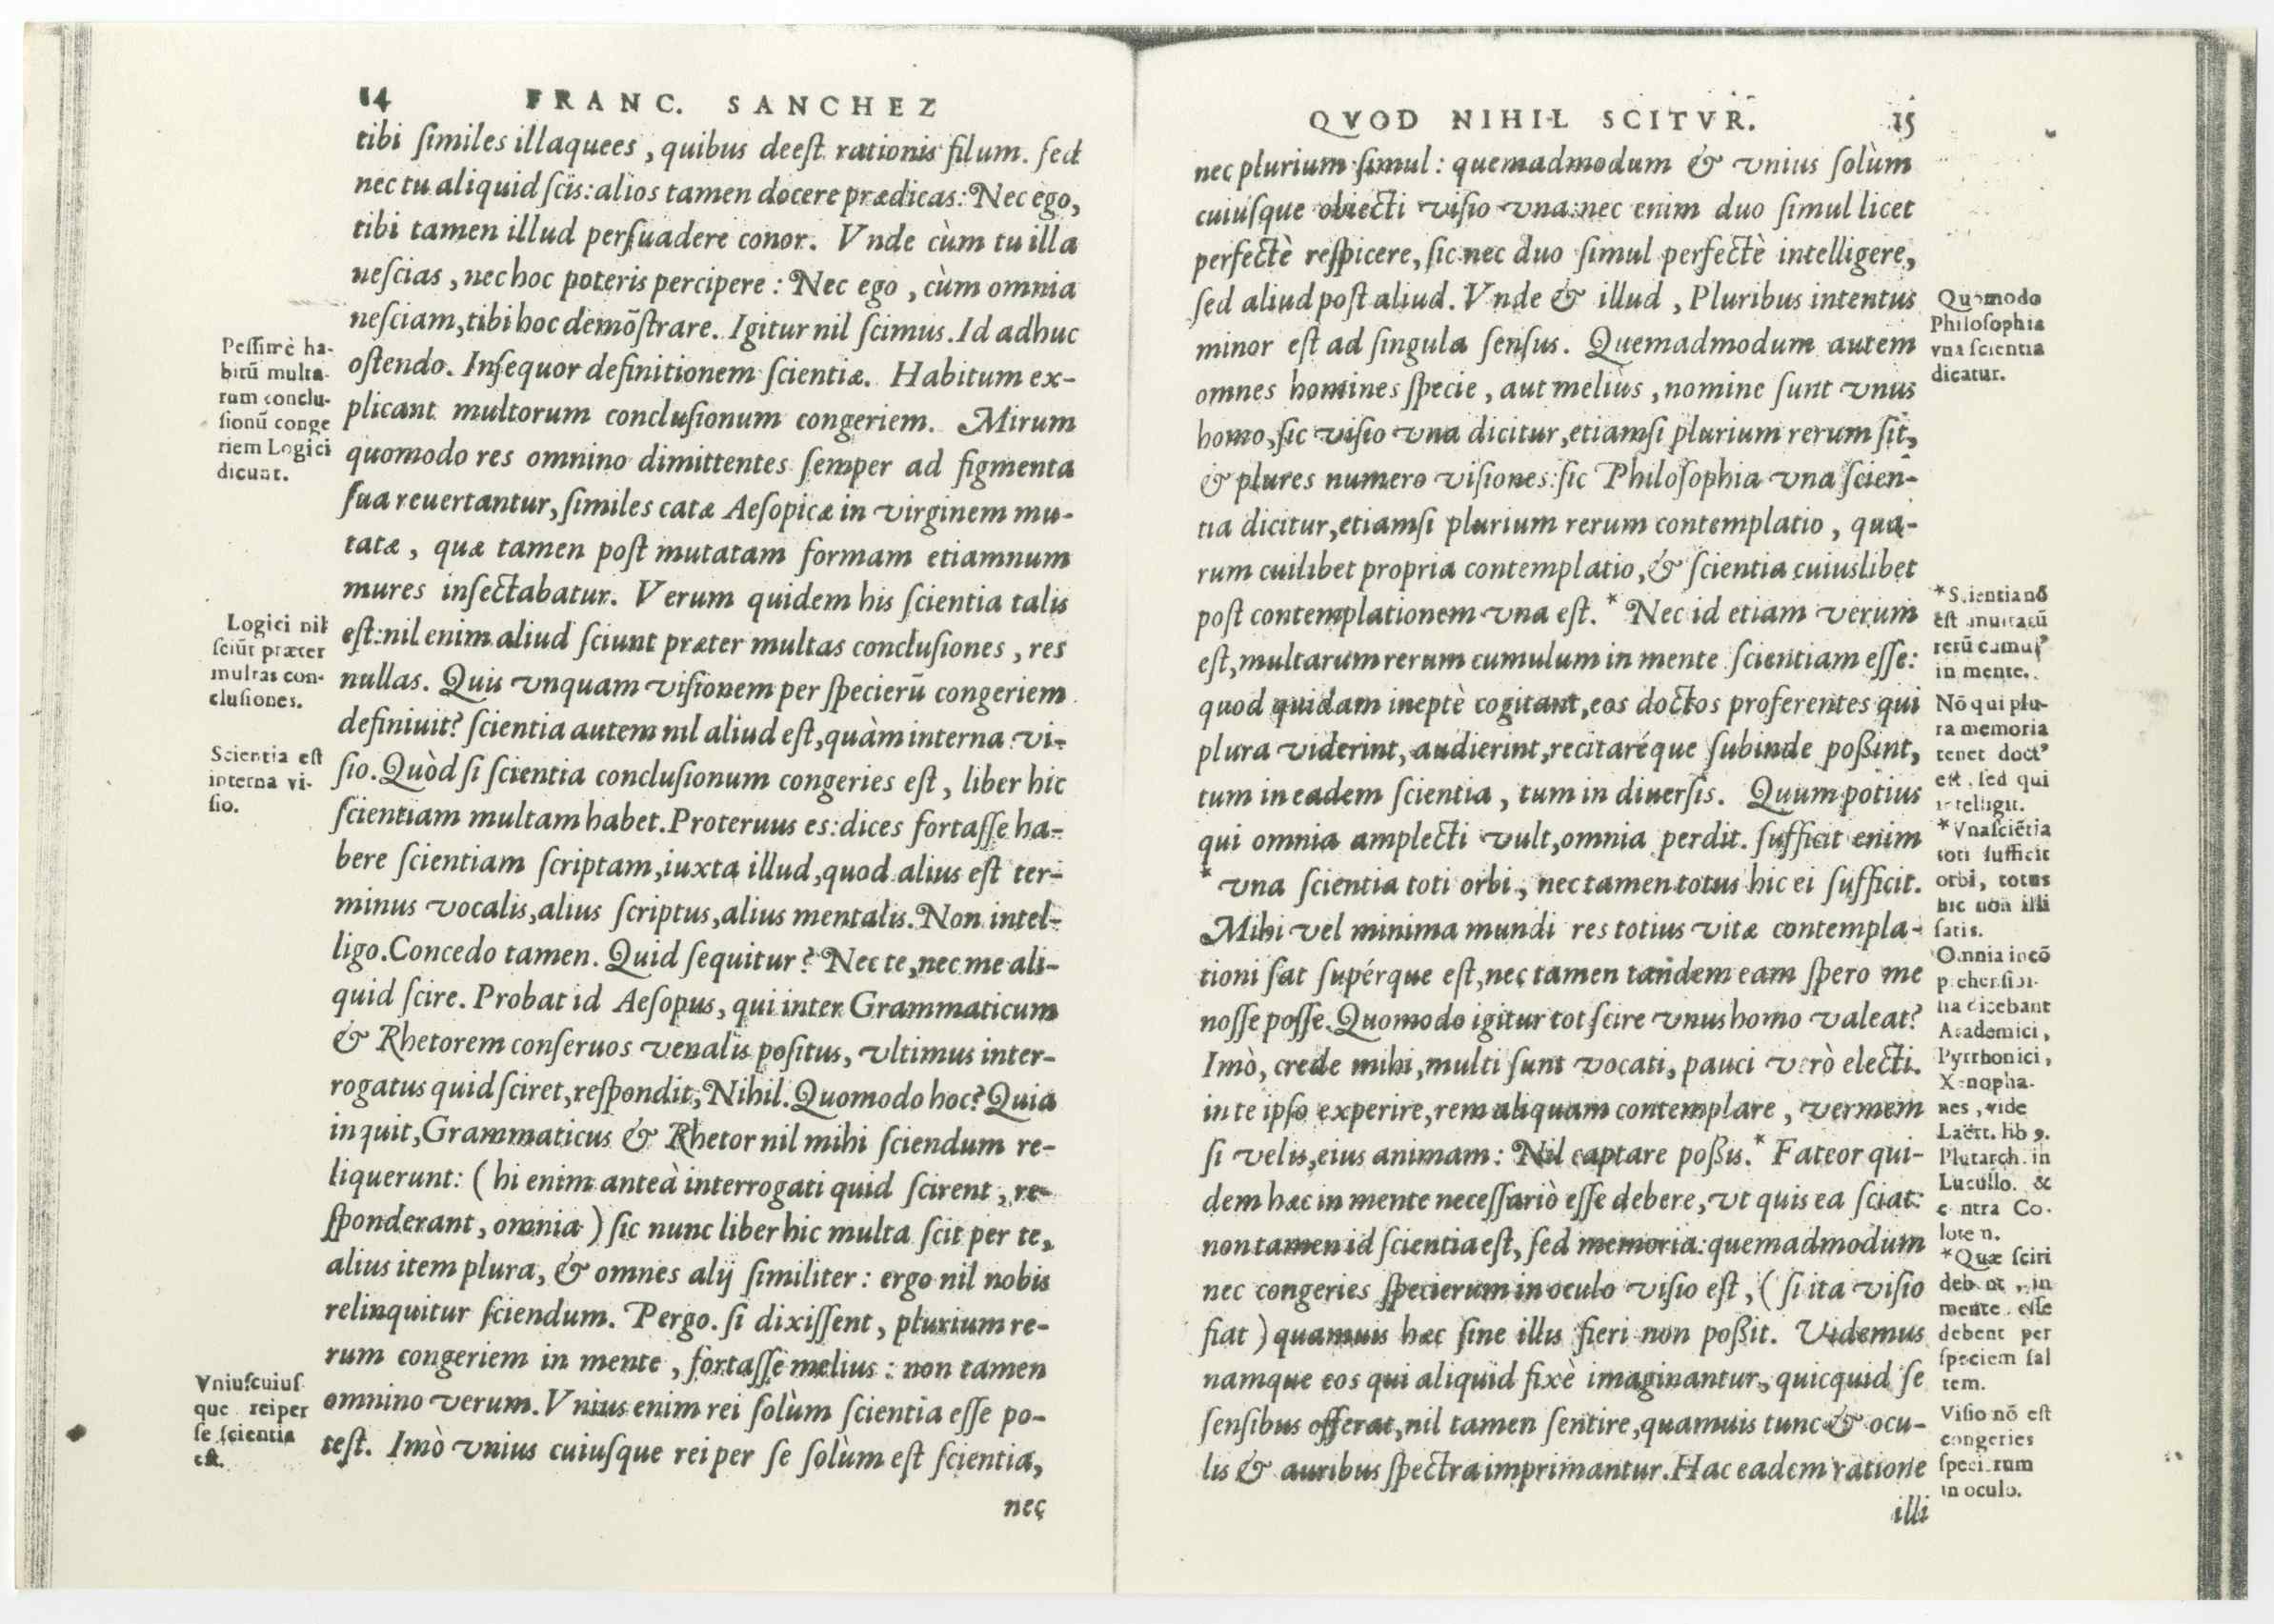 14 FRANC. SANCHEZ
tibi ſimiles illaquees, quibus deeſt rationis filum. ſed
nec tu aliquid ſcis: alios tamen docere prædicas: Nec ego,
tibi tamen illud perſuadere conor. Vnde cùm tu illa
neſcias, nec hoc poteris percipere: Nec ego, cùm omnia
neſciam, tibi hoc demõſtrare. Igitur nil ſcimus. Id adhuc
oſtendo. Inſequor definitionem ſcientiæ. Habitum ex-
plicant multorum concluſionum congeriem. Mirum
quomodo res omnino dimittentes ſemper ad figmenta
ſua reuertantur, ſimiles catæ Aeſopicæ in virginem mu-
tatæ, quæ tamen poſt mutatam formam etiamnum
mures inſectabatur. Verum quidem his ſcientia talis
eſt: nil enim aliud ſciunt præter multas concluſiones, res
nullas. Quis vnquam viſionem per ſpecierũ congeriem
definiuit? ſcientia autem nil aliud eſt, quàm interna vi-
ſio. Quòd ſi ſcientia concluſionum congeries eſt, liber hic
ſcientiam multam habet. Proteruus es: dices fortaſſe ha-
bere ſcientiam ſcriptam, iuxta illud, quod alius eſt ter-
minus vocalis, alius ſcriptus, alius mentalis. Non intel-
ligo. Concedo tamen. Quid ſequitur? Nec te, nec me ali-
quid ſcire. Probat id Aeſopus, qui inter Grammaticum
& Rhetorem conſeruos venalis poſitus, vltimus inter-
rogatus quid ſciret, reſpondit, Nihil. Quomodo hoc? Quia
inquit, Grammaticus & Rhetor nil mihi ſciendum re-
liquerunt: (hi enim anteà interrogati quid ſcirent, re-
ſponderant, omnia) ſic nunc liber hic multa ſcit per te,
alius item plura, & omnes alij ſimiliter: ergo nil nobis
relinquitur ſciendum. Pergo. ſi dixiſſent, plurium re-
rum congeriem in mente, fortaſſe melius: non tamen
omnino verum. Vnius enim rei ſolùm ſcientia eſſe po-
teſt. Imò vnius cuiuſque rei per ſe ſolùm eſt ſcientia,
nec
Peſſimè ha-
bitũ multa-
rum conclu-
ſionũ conge
riem Logici
dicunt.
Logici nil
ſciũt præter
multas con-
cluſiones.
Scientia eſt
interna vi-
ſio.
Vniuſcuiuſ
que rei per
ſe ſcientia
eſt.
QVOD NIHIL SCITVR. 15
nec plurium ſimul: quemadmodum & vnius ſolùm
cuiuſque obiecti viſio vna: nec enim duo ſimul licet
perfectè reſpicere, ſic nec duo ſimul perfectè intelligere,
ſed aliud poſt aliud. Vnde & illud, Pluribus intentus
minor eſt ad ſingula ſenſus. Quemadmodum autem
omnes homines ſpecie, aut meliùs, nomine ſunt vnus
homo, ſic viſio vna dicitur, etiamſi plurium rerum ſit,
& plures numero viſiones: ſic Philoſophia vna ſcien-
tia dicitur, etiamſi plurium rerum contemplatio, qua-
rum cuilibet propria contemplatio, & ſcientia cuiuslibet
poſt contemplationem vna eſt. * Nec id etiam verum
eſt, multarum rerum cumulum in mente ſcientiam eſſe:
quod quidam ineptè cogitant, eos doctos proferentes qui
plura viderint, audierint, recitaréque ſubinde poßint,
tum in eadem ſcientia, tum in diuerſis. Quum potius
qui omnia amplecti vult, omnia perdit. ſufficit enim
* vna ſcientia toti orbi, nec tamen totus hic ei ſufficit.
Mihi vel minima mundi res totius vitæ contempla-
tioni ſat ſupérque eſt, nec tamen tandem eam ſpero me
noſſe poſſe. Quomodo igitur tot ſcire vnus homo valeat?
Imò, crede mihi, multi ſunt vocati, pauci verò electi.
in te ipſo experire, rem aliquam contemplare, vermem
ſi velis, eius animam: Nil captare poßis. * Fateor qui-
dem hæc in mente neceſſariò eſſe debere, vt quis ea ſciat:
non tamen id ſcientia eſt, ſed memoria: quemadmodum
nec congeries ſpecierum in oculo viſio eſt, (ſi ita viſio
fiat) quamuis hæc ſine illis fieri non poßit. Videmus
namque eos qui aliquid fixè imaginantur, quicquid ſe
ſenſibus offerat, nil tamen ſentire, quamuis tunc & ocu-
lis & auribus ſpectra imprimantur. Hac eadem ratione
illi
Quomodo
Philoſophia
vna ſcientia
dicatur.
*Scientia nõ
eſt multarũ
rerũ cumulꝰ
in mente.
Nõ qui plu-
ra memoria
tenet doctꝰ
eſt, ſed qui
intelligit.
*Vna ſciẽtia
toti ſufficit
orbi, totus
hic non illi
ſatis.
Omnia incõ
prehenſibi-
lia dicebant
Academici,
Pyrrhonici,
Xenopha-
nes, vide
Laërt. lib 9.
Plutarch. in
Lucullo. &
contra Co-
loten.
*Quæ ſciri
debent, in
mente eſſe
debent per
ſpeciem ſal
tem.
Viſio nõ eſt
congeries
ſpecierum
in oculo.